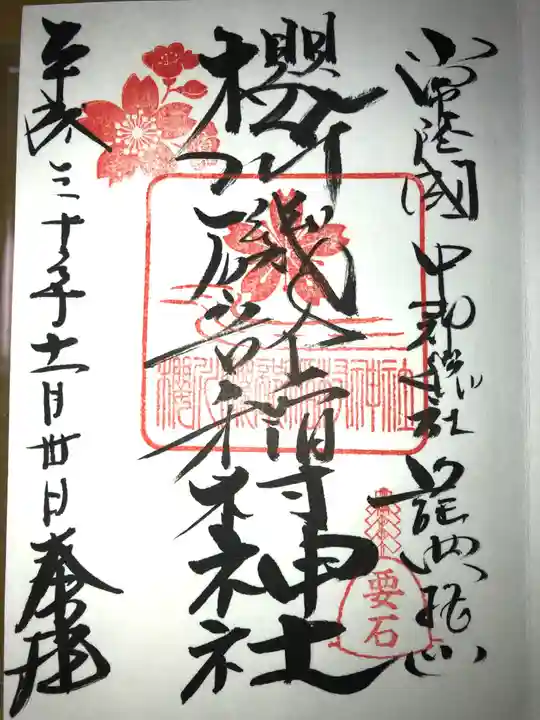 常陸國 中郡総社
櫻川磯部稲村神社
平成三十年十一月廿日 奉拝
櫻川磯部稲村神社
要石